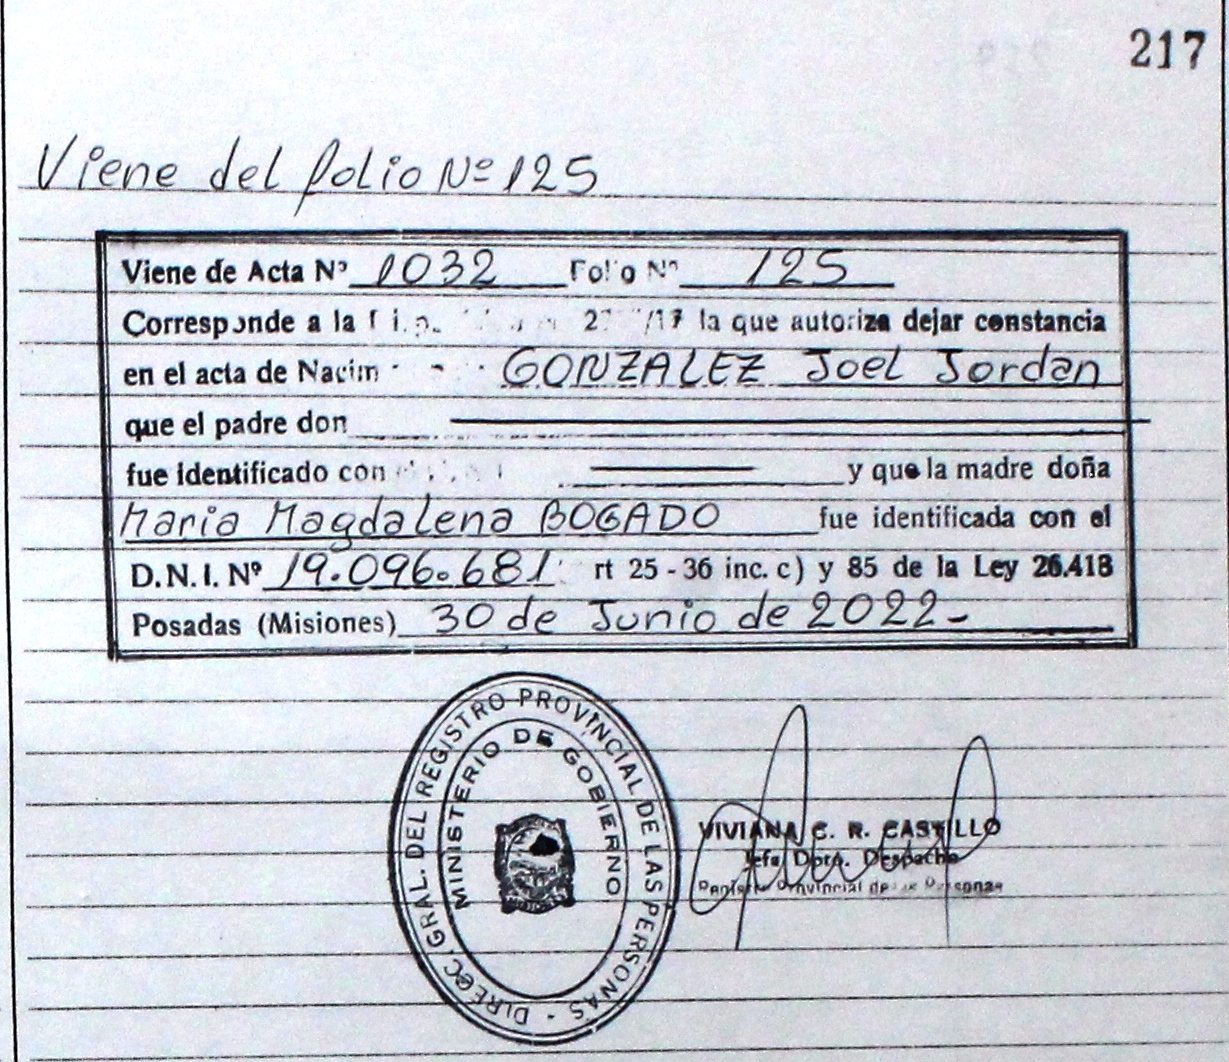 217
Viene del folio Nº 125
Viene de Acta Nº 1032 Folio Nº 125
Corresponde a la la que autoriza dejar constancia
en el acta de GONZALEZ Joel Jordan
que el padre don
fue identificado con y que la madre doña
Maria Magdalena BOGADO fue identificada con el
D.N.I. Nº 19.096.681 rt 25 - 36 inc. c) y 85 de la Ley 26.413
Posadas (Misiones) 30 de Junio de 2022-
DIRECC. GRAL. DEL REGISTRO PROVINCIAL DE LAS PERSONAS -
MINISTERIO DE GOBIERNO
VIVIANA C. R. CASTILLO
Jefa Dpto. Despacho
Registro Provincial de las Personas